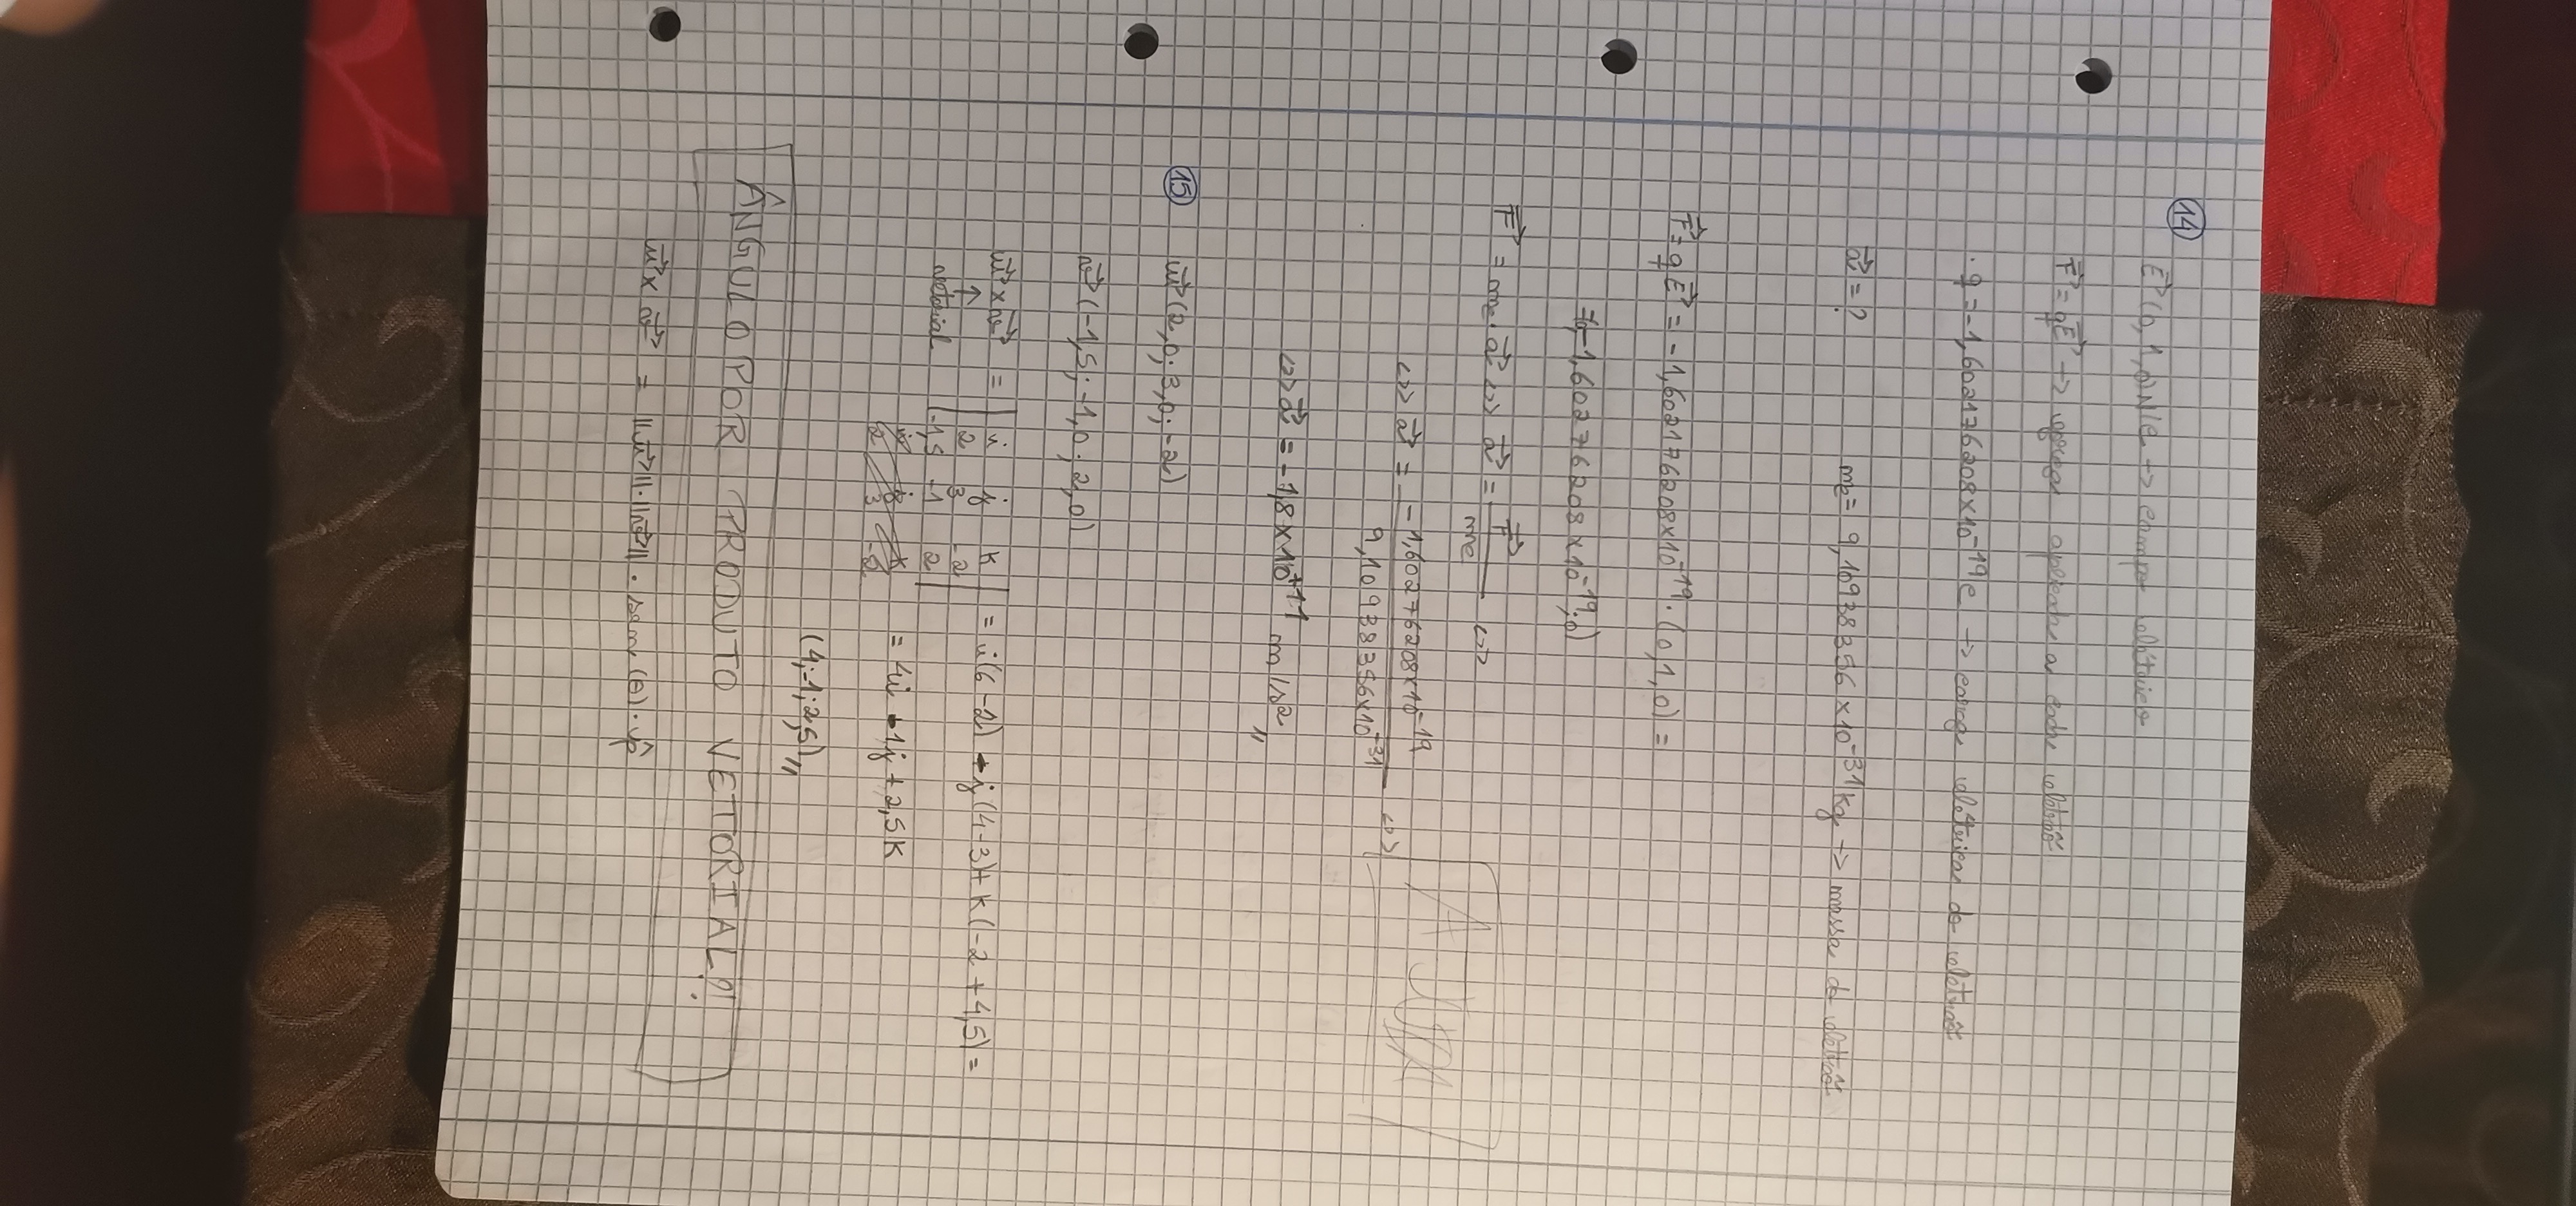 14
E⃗(0,1,0)N/C -> campo elétrico
F⃗ = qE⃗ -> força aplicada a cada eletrão
· q = -1,6021766208×10⁻¹⁹C -> carga elétrica do eletrão
a⃗ = ? me = 9,10938356 × 10⁻³¹kg -> massa do eletrão
F⃗ = qE⃗ = -1,6021766208×10⁻¹⁹ · (0,1,0) =
=(0,-1,602176208×10⁻¹⁹,0)
F⃗ = me · a⃗ <=> a⃗ = F⃗/me <=>
<=> a⃗ = -1,602176208×10⁻¹⁹/9,10938356×10⁻³¹ <=>
<=> a⃗ = -1,8×10⁺¹¹ m/s2 "
15
u⃗(2,0;3,0;-2)
v⃗(-1,5;-1,0;2,0)
u⃗×v⃗ = | i j k | = i(6-2) - j(4-3) + k(-2+4,5) =
| 2 3 -2 |
vetorial |-1,5 -1 2 | = 4i - 1j + 2,5k
(4;-1;2,5) "
ÂNGULO POR PRODUTO VETTORIAL?!
u⃗ × v⃗ = ||u⃗||·||v⃗|| · sen(θ) · p̂